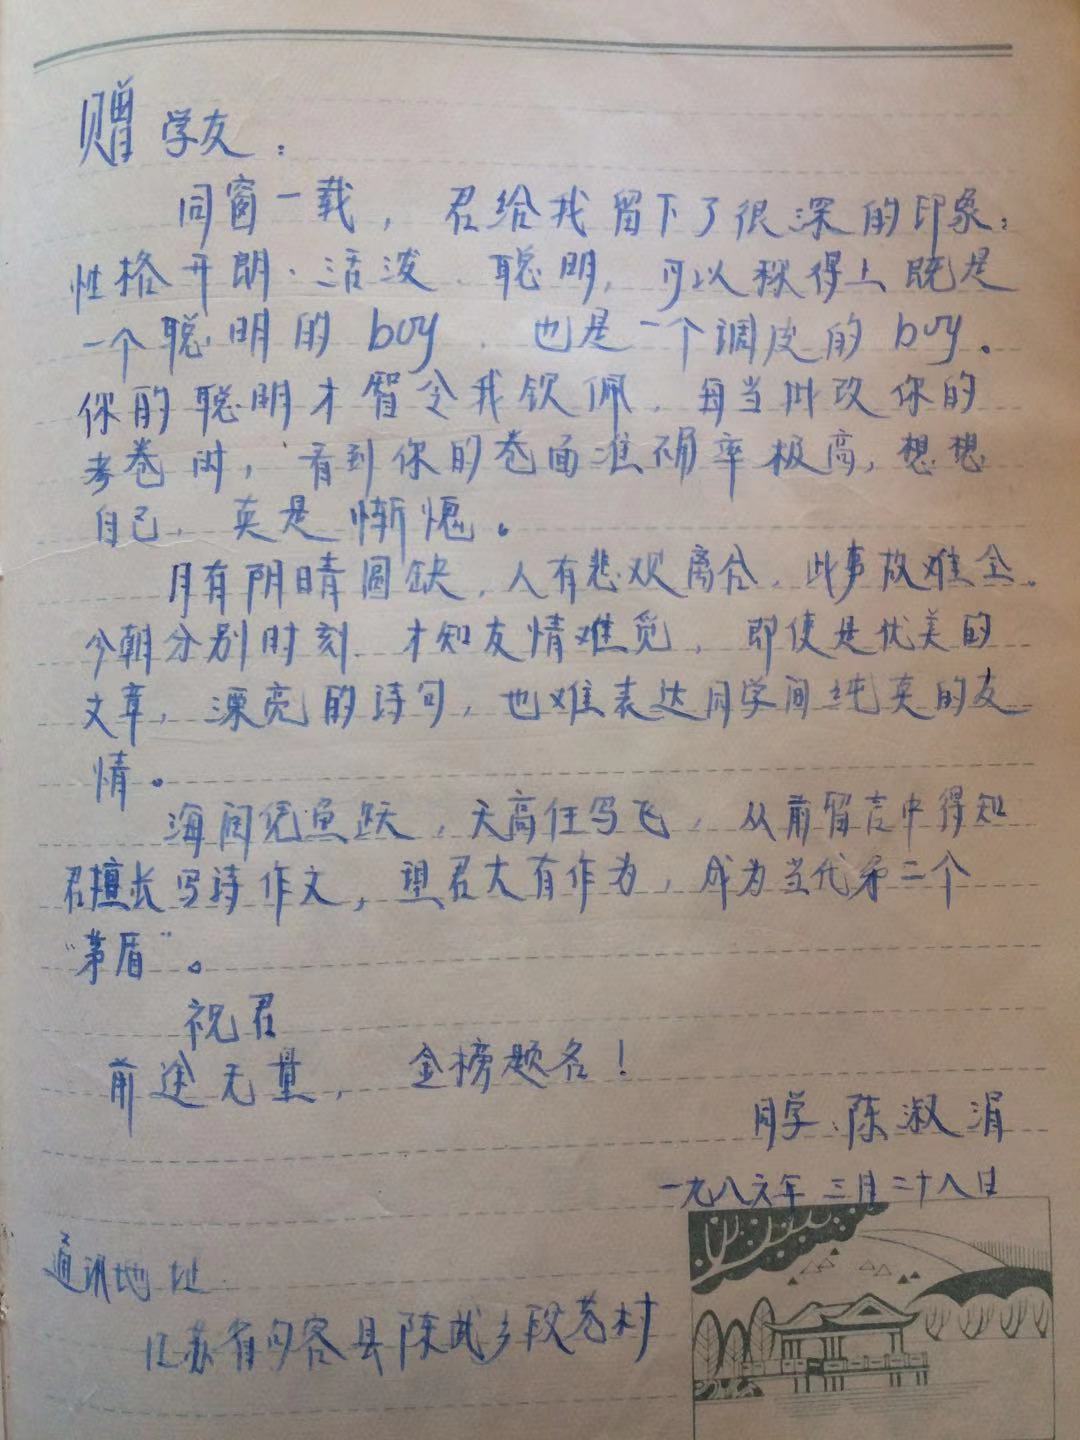 赠学友：
同窗一载，君给我留下了很深的印象：
性格开朗、活泼、聪明，可以称得上既是
一个聪明的boy，也是一个调皮的boy。
你的聪明才智令我钦佩，每当批改你的
考卷时，看到你的卷面准确率极高，想想
自己，真是惭愧。
月有阴晴圆缺，人有悲观离合，此事故难全。
今朝分别时刻，才知友情难觅，即使是优美的
文章，漂亮的诗句，也难表达同学间纯真的友
情。
海阔凭鱼跃，天高任鸟飞，从前留言中得知
君擅长写诗作文，望君大有作为，成为当代第二个
“茅盾”。
祝君
前途无量，金榜题名！
同学：陈淑涓
一九八六年三月二十八日
通讯地址：
江苏省句容县陈武乡段巷村